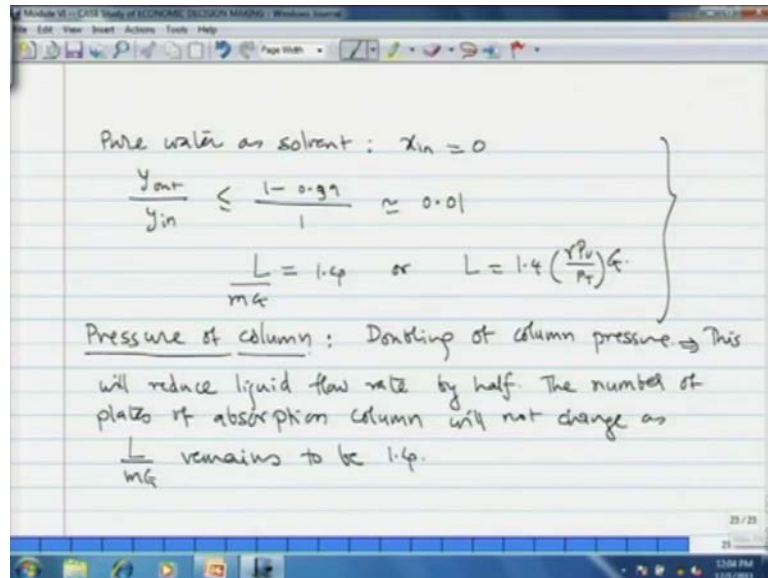 Module VI -- CASE Study of ECONOMIC DECISION MAKING - Windows Journal
File Edit View Insert Actions Tools Help
Page Width
Pure water as solvent : xin = 0
yout / yin ≤ 1 - 0.99 / 1 ≃ 0.01
L / mG = 1.4 or L = 1.4 (γPv / PT) G.
Pressure of column : Doubling of column pressure ⇒ This
will reduce liquid flow rate by half. The number of
plates of absorption column will not change as
L / mG remains to be 1.4.
23 / 23
23
12:04 PM